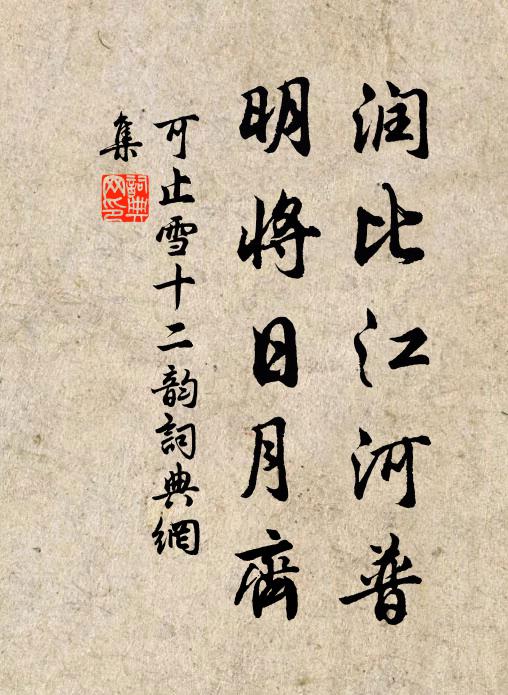 润比江河普
明将日月齊
可止雪十二韵詞典網
集
詞典网印